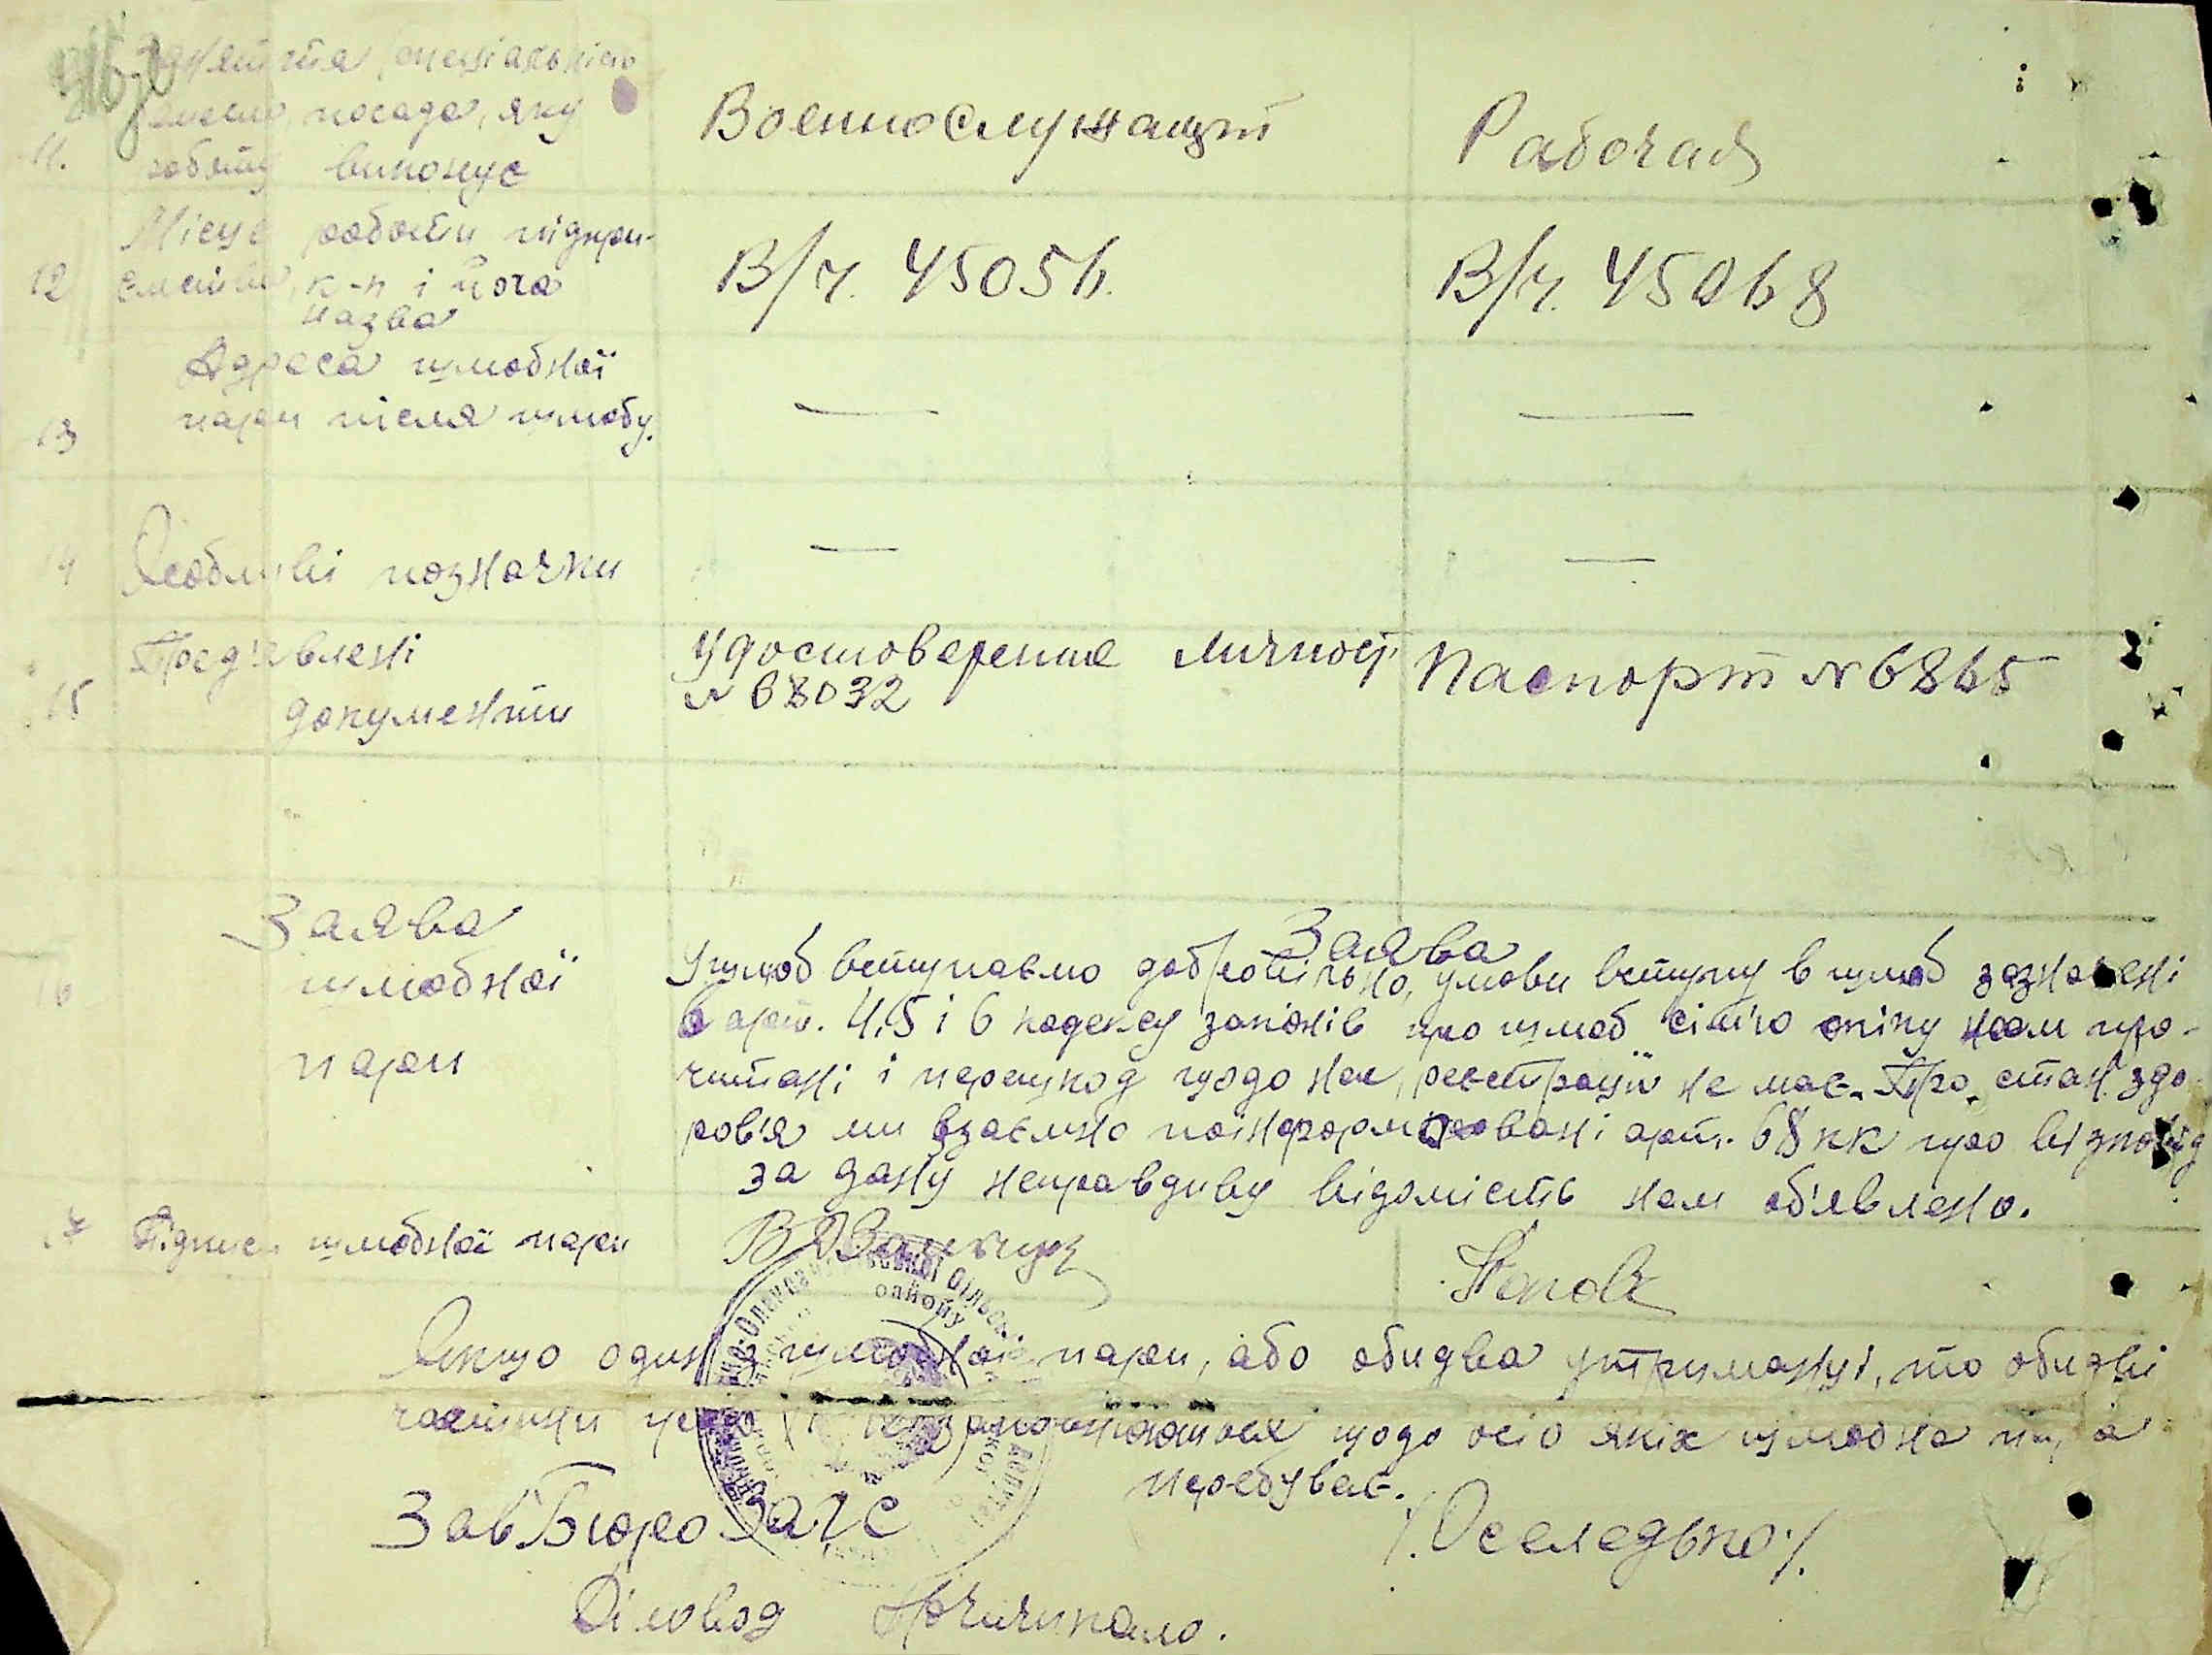 Заняття, спеціальність
посада, яку
11. роботу виконує
Военнослужащий
Рабочая
Місце роботи підпри-
12 ємства, к-п і його
назва
В/ч. 45056.
В/ч. 45068
Адреса шлюбної
13 пари після шлюбу.
— —
14 Особливі позначки
— —
15 Пред'явлені
документи
Удостоверение личност.
№ 68032
Паспорт № 6865
Заява
16 шлюбної
пари
Заява
У шлюб вступаємо добровільно, умови вступу в шлюб зазначені
в арт. 4,5 і 6 кодексу законів про шлюб сім'ю опіку нам про-
читані і перешкод щодо нея реєстрації не має. Про стан здо
ров'я ми взаємно поінформовані арт. 68 кк про відповід
за дану неправдиву відомість нам об'явлено.
17 Підписи шлюбної пари
Якщо один з шлюбної пари, або обидва утриманці, то обидві
частини щодо осіб яких шлюбна
перебуває.
Зав Бюро Загс
/.Оселедько/.
Діловод